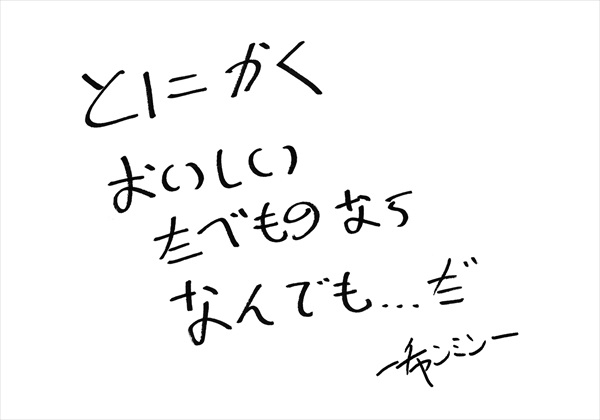 とにかく
おいしい
たべものなら
なんでも...だ
ーチャンミンー